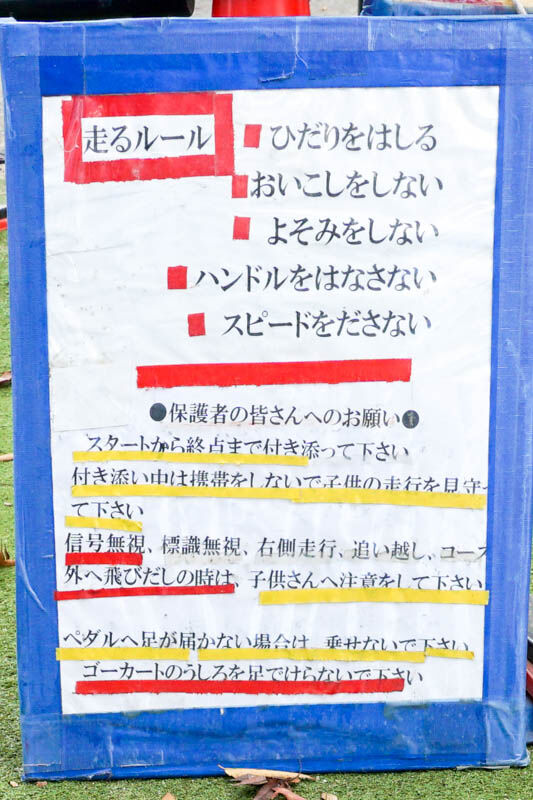 走るルール
ひだりをはしる
おいこしをしない
よそみをしない
ハンドルをはなさない
スピードをださない
●保護者の皆さんへのお願い●
スタートから終点まで付き添って下さい
付き添い中は携帯をしないで子供の走行を見守っ
て下さい
信号無視、標識無視、右側走行、追い越し、コース
外へ飛びだしの時は、子供さんへ注意をして下さい
ペダルへ足が届かない場合は、乗せないで下さい
ゴーカートのうしろを足でけらないで下さい